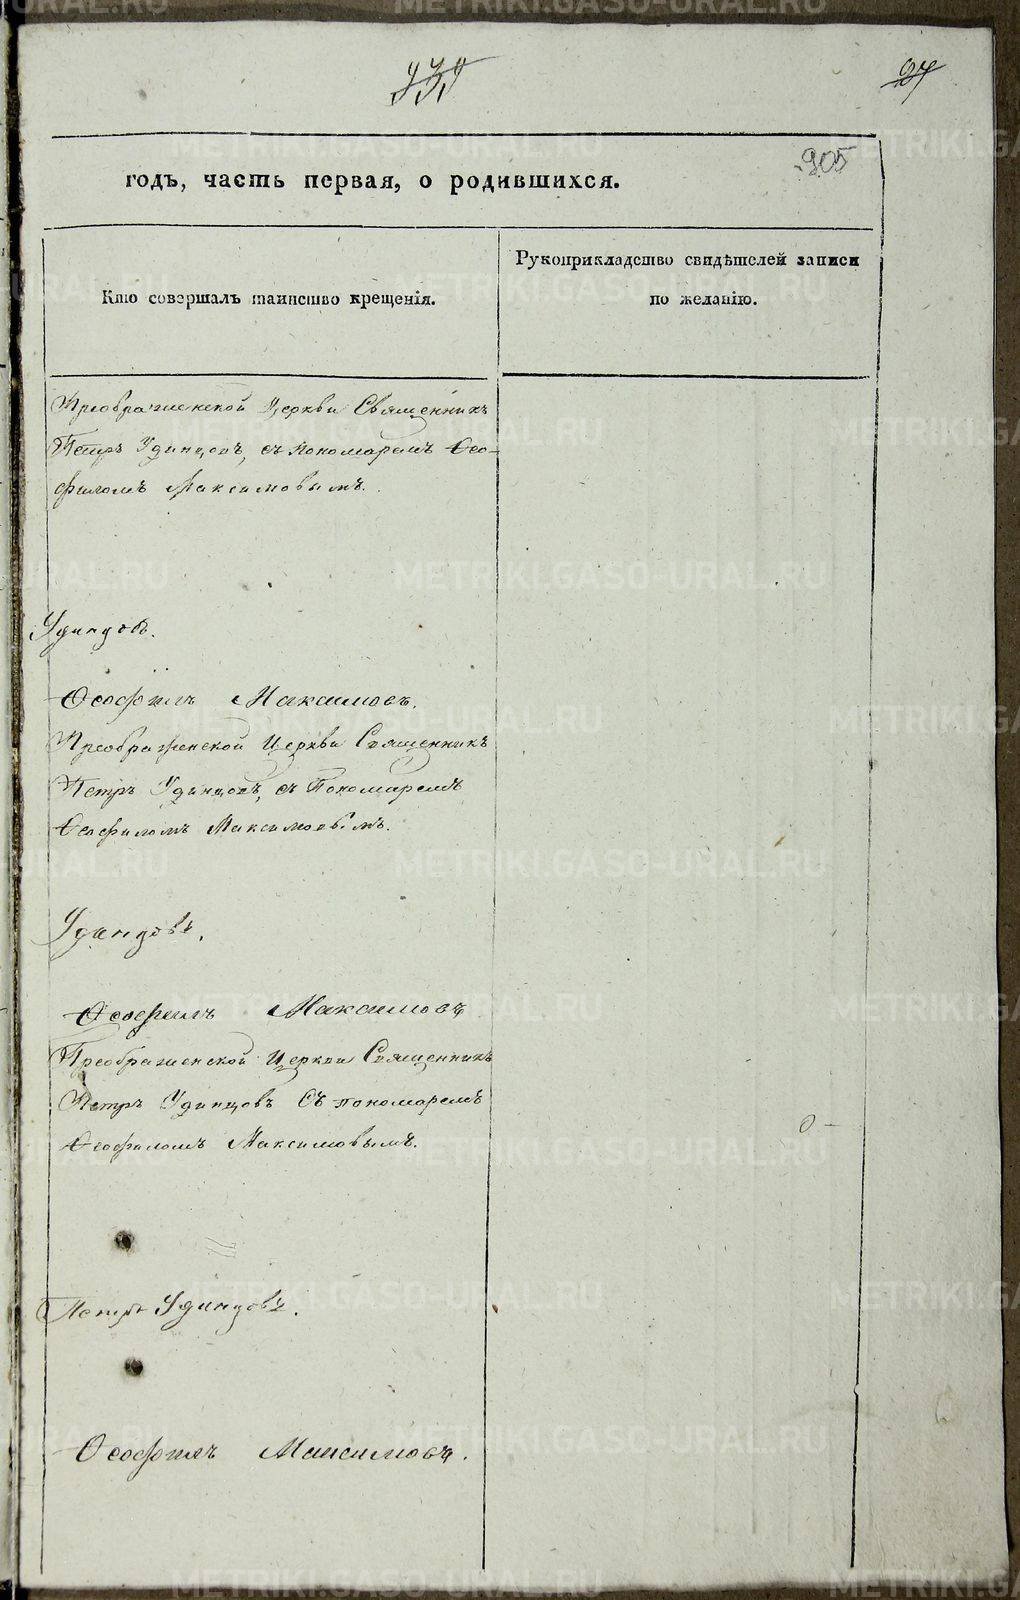 905
годъ, часть первая, о родившихся.
Кто совершалъ таинство крещенія.
Рукоприкладство свидѣтелей записи
по желанію.
Преображенской Церкви Священникъ
Петръ Удинцовъ, съ пономаремъ Ѳео-
филомъ Максимовымъ.
Удинцовъ.
Ѳеофилъ Максимовъ.
Преображенской Церкви Священникъ
Петръ Удинцовъ, съ Пономаремъ
Ѳеофиломъ Максимовымъ.
Удинцовъ.
Ѳеофилъ Максимовъ
Преображенской Церкви Священникъ
Петръ Удинцовъ Съ пономаремъ
Ѳеофиломъ Максимовымъ.
Петръ Удинцовъ.
Ѳеофилъ Максимовъ.
METRIKI.GASO-URAL.RU